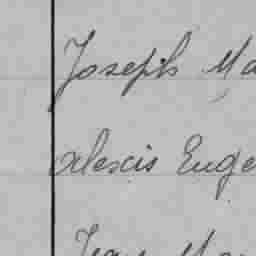 Joseph Ma
alexis Euge